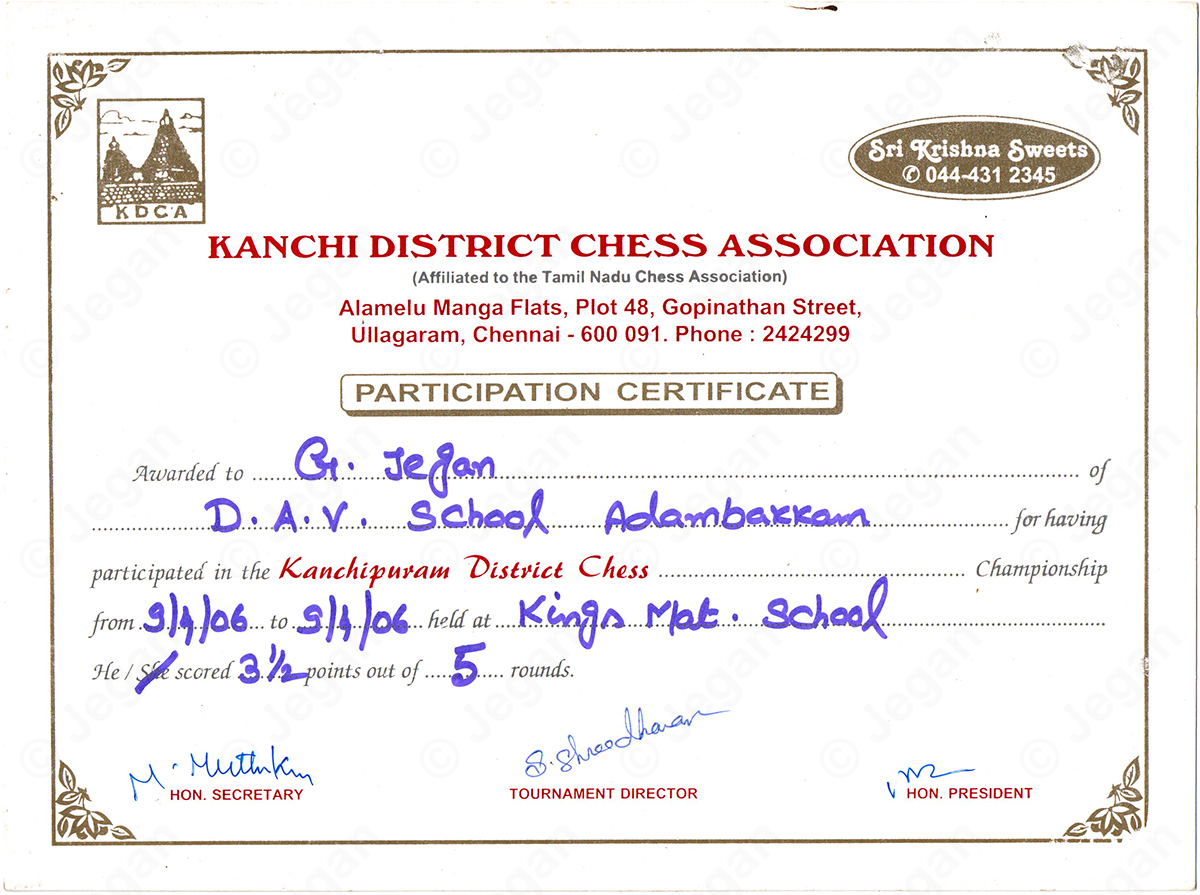 KDCA
Sri Krishna Sweets
✆ 044-431 2345
KANCHI DISTRICT CHESS ASSOCIATION
(Affiliated to the Tamil Nadu Chess Association)
Alamelu Manga Flats, Plot 48, Gopinathan Street,
Ullagaram, Chennai - 600 091. Phone : 2424299
PARTICIPATION CERTIFICATE
Awarded to G. Jegan of
D.A.V. School Adambakkam for having
participated in the Kanchipuram District Chess Championship
from 9/4/06 to 9/4/06 held at Kings Mat. School
He / She scored 3 1/2 points out of 5 rounds.
S. Shreedharan
HON. SECRETARY TOURNAMENT DIRECTOR HON. PRESIDENT
© Jegan